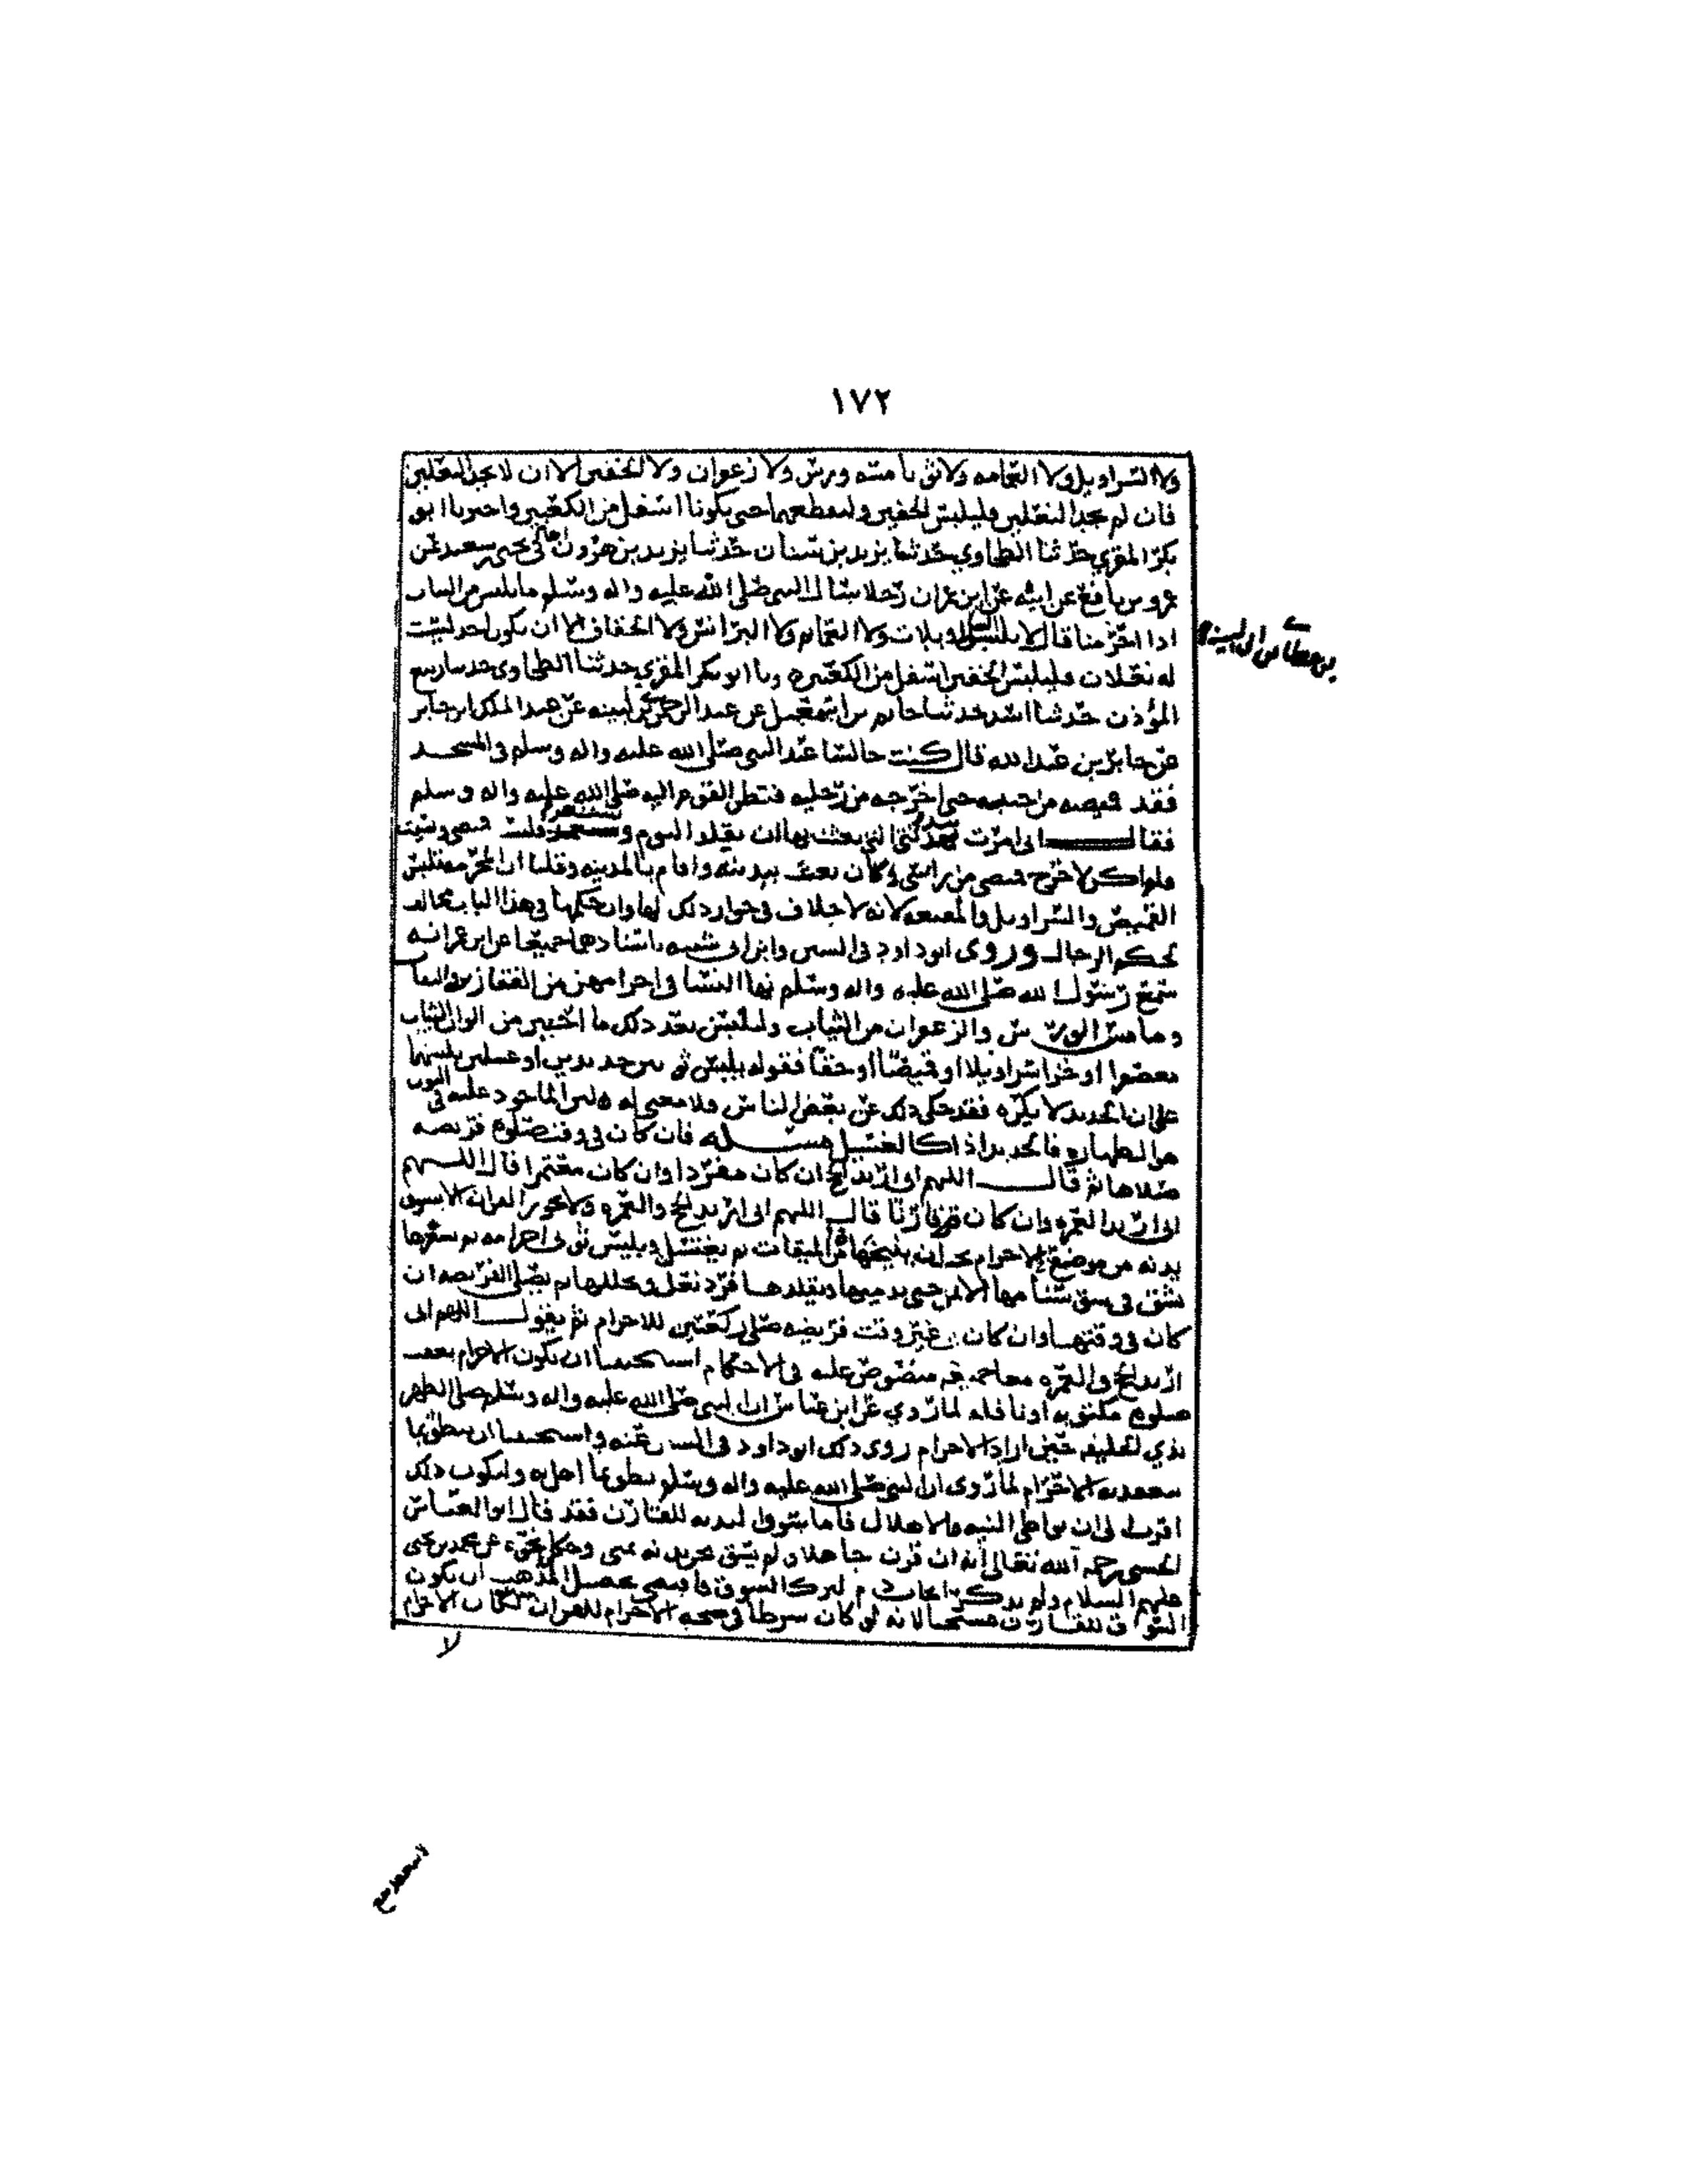 ١٧٢
ولا السراويل ولا العمامه ولا ثوبا مسه ورس ولا زعفران ولا الخفين الا ان لا يجد النعلين
فان لم يجد النعلين فليلبس الخفين وليقطعهما حتى يكونا اسفل من الكعبين واخبرنا ابو
بكر المقري حدثنا الطحاوي حدثنا يزيد بن سنان حدثنا يزيد بن هرون يحيى بن سعيد عن
عمر بن نافع عن ابيه عن ابن عمران رجلا سال النبي صلى الله عليه واله وسلم ما نلبس من الثياب
اذا احرمنا قال لا تلبسوا السراويلات ولا العمائم ولا البرانس ولا الخفاف الا ان يكون احد ليست
له نعلان فليلبس الخفين اسفل من الكعبين وانا ابو بكر المقري حدثنا الطحاوي حدثنا ربيع
المؤذن حدثنا اسد حدثنا حاتم بن اسمعيل عن عبد الرحمن لبيبه عن عبد الملك بن جابر
عن جابر بن عبد الله قال كنت جالسا عند النبي صلى الله عليه واله وسلم في المسجد
فقد قميصه من جيبه حتى اخرجه من رجليه فنظر القوم اليه صلى الله عليه واله وسلم
فقال اني امرت ببدني التي بعثت بها ان يقلد اليوم فلبست قميصي ونسيت
فلم اكن لاخرج قميصي من راسي وكان بعث ببدنه واقام بالمدينه وقلنا ان المحرمه تلبس
القميص والسراويل والمقنعه لانه لا خلاف في جواز ذلك لها وان حكمها في هذا الباب مخالف
لحكم الرجال وروى ابو داود في السنن وابن ابي شيبه باسنادهما جميعا عن ابن عمر انه
سمع رسول الله صلى الله عليه واله وسلم نها النسا في احرامهن عن القفازين والنقاب
وما مس الورس والزعفران من الثياب ولتلبس بعد ذلك ما احبت من الوان الثياب
معصفرا او خزا او سراويلا او قميصا او خفا فقوله يلبس ثوبين جديدين او غسيلين
على ان الجديد لا يكره فقد حكي ذلك عن بعض الناس ولا معنى له لان الماخوذ عليه في الثوب
هو الطهاره فالجديد اذا كالغسيل مسئله فان كان في وقت صلوه فريضه
صلاها ثم قال اللهم اني اريد الحج ان كان مفردا وان كان معتمرا قال اللهم
اني اريد العمره وان كان قارنا قال اللهم اني اريد الحج والعمره ولا يجوز القران الا بسوق
بدنه من موضع الاحرام يجب ان ينيخها في الميقات ثم يغتسل ويلبس ثوبي احرامه ثم يشعرها
بشق في شق سنامها الايمن حتى يدميها ويقلدها فرد نعل ويجللها ثم يصلي الفريضه ان
كان في وقتها وان كان في غير وقت فريضه صلى ركعتين للاحرام ثم يقول اللهم اني
اريد الحج والعمره معا جميعه منصوص عليه في الاحكام استحببنا ان يكون الاحرام بعقب
صلوه مكتوبه او نافله لما روي عن ابن عباس ان النبي صلى الله عليه واله وسلم صلى الظهر
بذي الحليفه حين اراد الاحرام روى ذلك ابو داود في السنن عنه واستحببنا ان ينطق بما
الاحرام لما روى ان النبي صلى الله عليه واله وسلم نطق بما اهل به وليكون ذلك
اقرب الى ان يواطي النيه والاهلال فاما سوق البدنه للقارن فقد قال ابو العباس
الحسني رحمه الله تعالى انه ان قرن جاهلا ولم يسق بدنه وحكى نحوه عن محمد بن يحيى
عليهم السلام ولم يذكر لترك السوق تحصيل المذهب ان يكون
السوق للقارن مستحبا لانه لو كان شرطا في صحه الاحرام للقران لكان الاحرام
لا